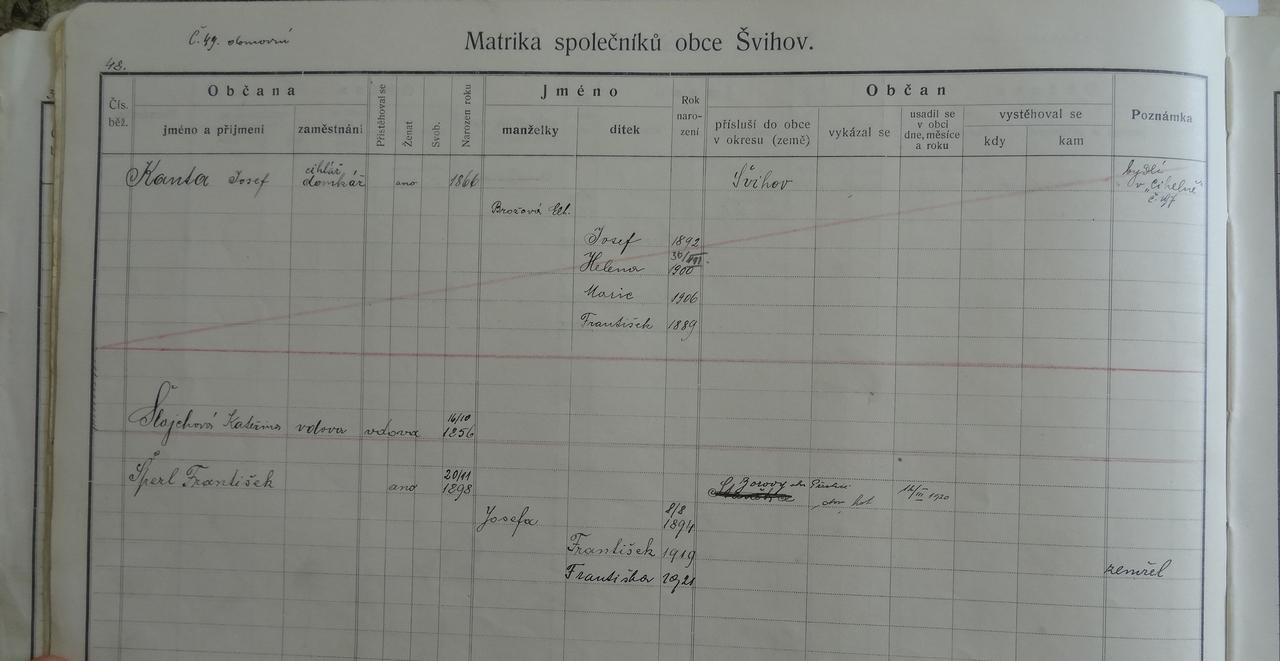 Č. 49. obmovní
Matrika společníků obce Švihov.
48.
Čís. běž.
Občana
jméno a příjmení
zaměstnání
Přistěhoval se
Ženat
Svob.
Narozen roku
Jméno
manželky
dítek
Rok naro- zení
Občan
přísluší do obce v okresu (země)
vykázal se
usadil se v obci dne, měsíce a roku
vystěhoval se
kdy
kam
Poznámka
Kanta Josef cihlář domkář ano 1866 Švihov bydlí v „cihelně" č. 197
Brožová
Josef 1892
Helena 30/VIII. 1900
Marie 1906
František 1889
Šlajchová Kateřina vdova vdova 16/10 1856
Šperl František ano 20/11 1898 Borovy dom. list 12/III 1920
Josefa 8/8 1894
František 1919
Františka 1921 zemřel